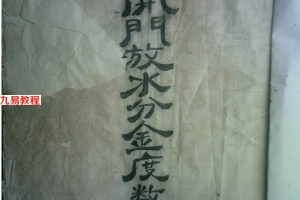 開門放水分金度数
九易教程